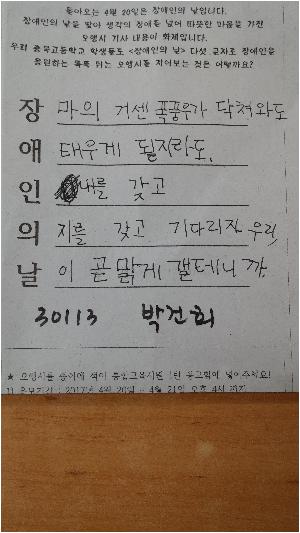 돌아오는 4월 20일은 장애인의 날입니다.
장애인의 날을 맞아 생각의 장애를 넘어 따뜻한 마음을 가진
오행시 기사 내용이 화제입니다.
우리 중고등학교 학생들도 <장애인의 날> 다섯 글자로 장애인을
응원하는 톡톡 튀는 오행시를 지어보는 것은 어떨까요?
장 마의 거센 폭풍우가 닥쳐와도
애 태우게 될지라도,
인 내를 갖고
의 지를 갖고 기다리자 우리,
날 이 곧 맑게 갤테니까
30113 박건희
★ 오행시를 중에
4월 20일 ~ 4월 21일 오후 4시